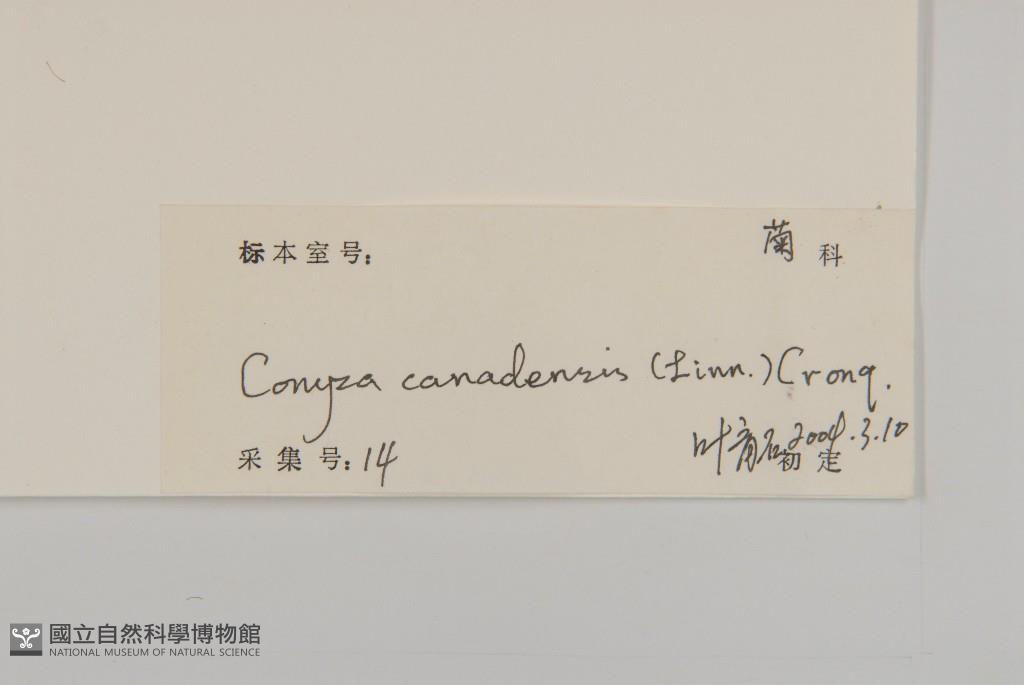 标本室号：
菊 科
Conyza canadensis (Linn.) Cronq.
叶育石 2004.3.10
采集号：14
初定
國立自然科學博物館
NATIONAL MUSEUM OF NATURAL SCIENCE